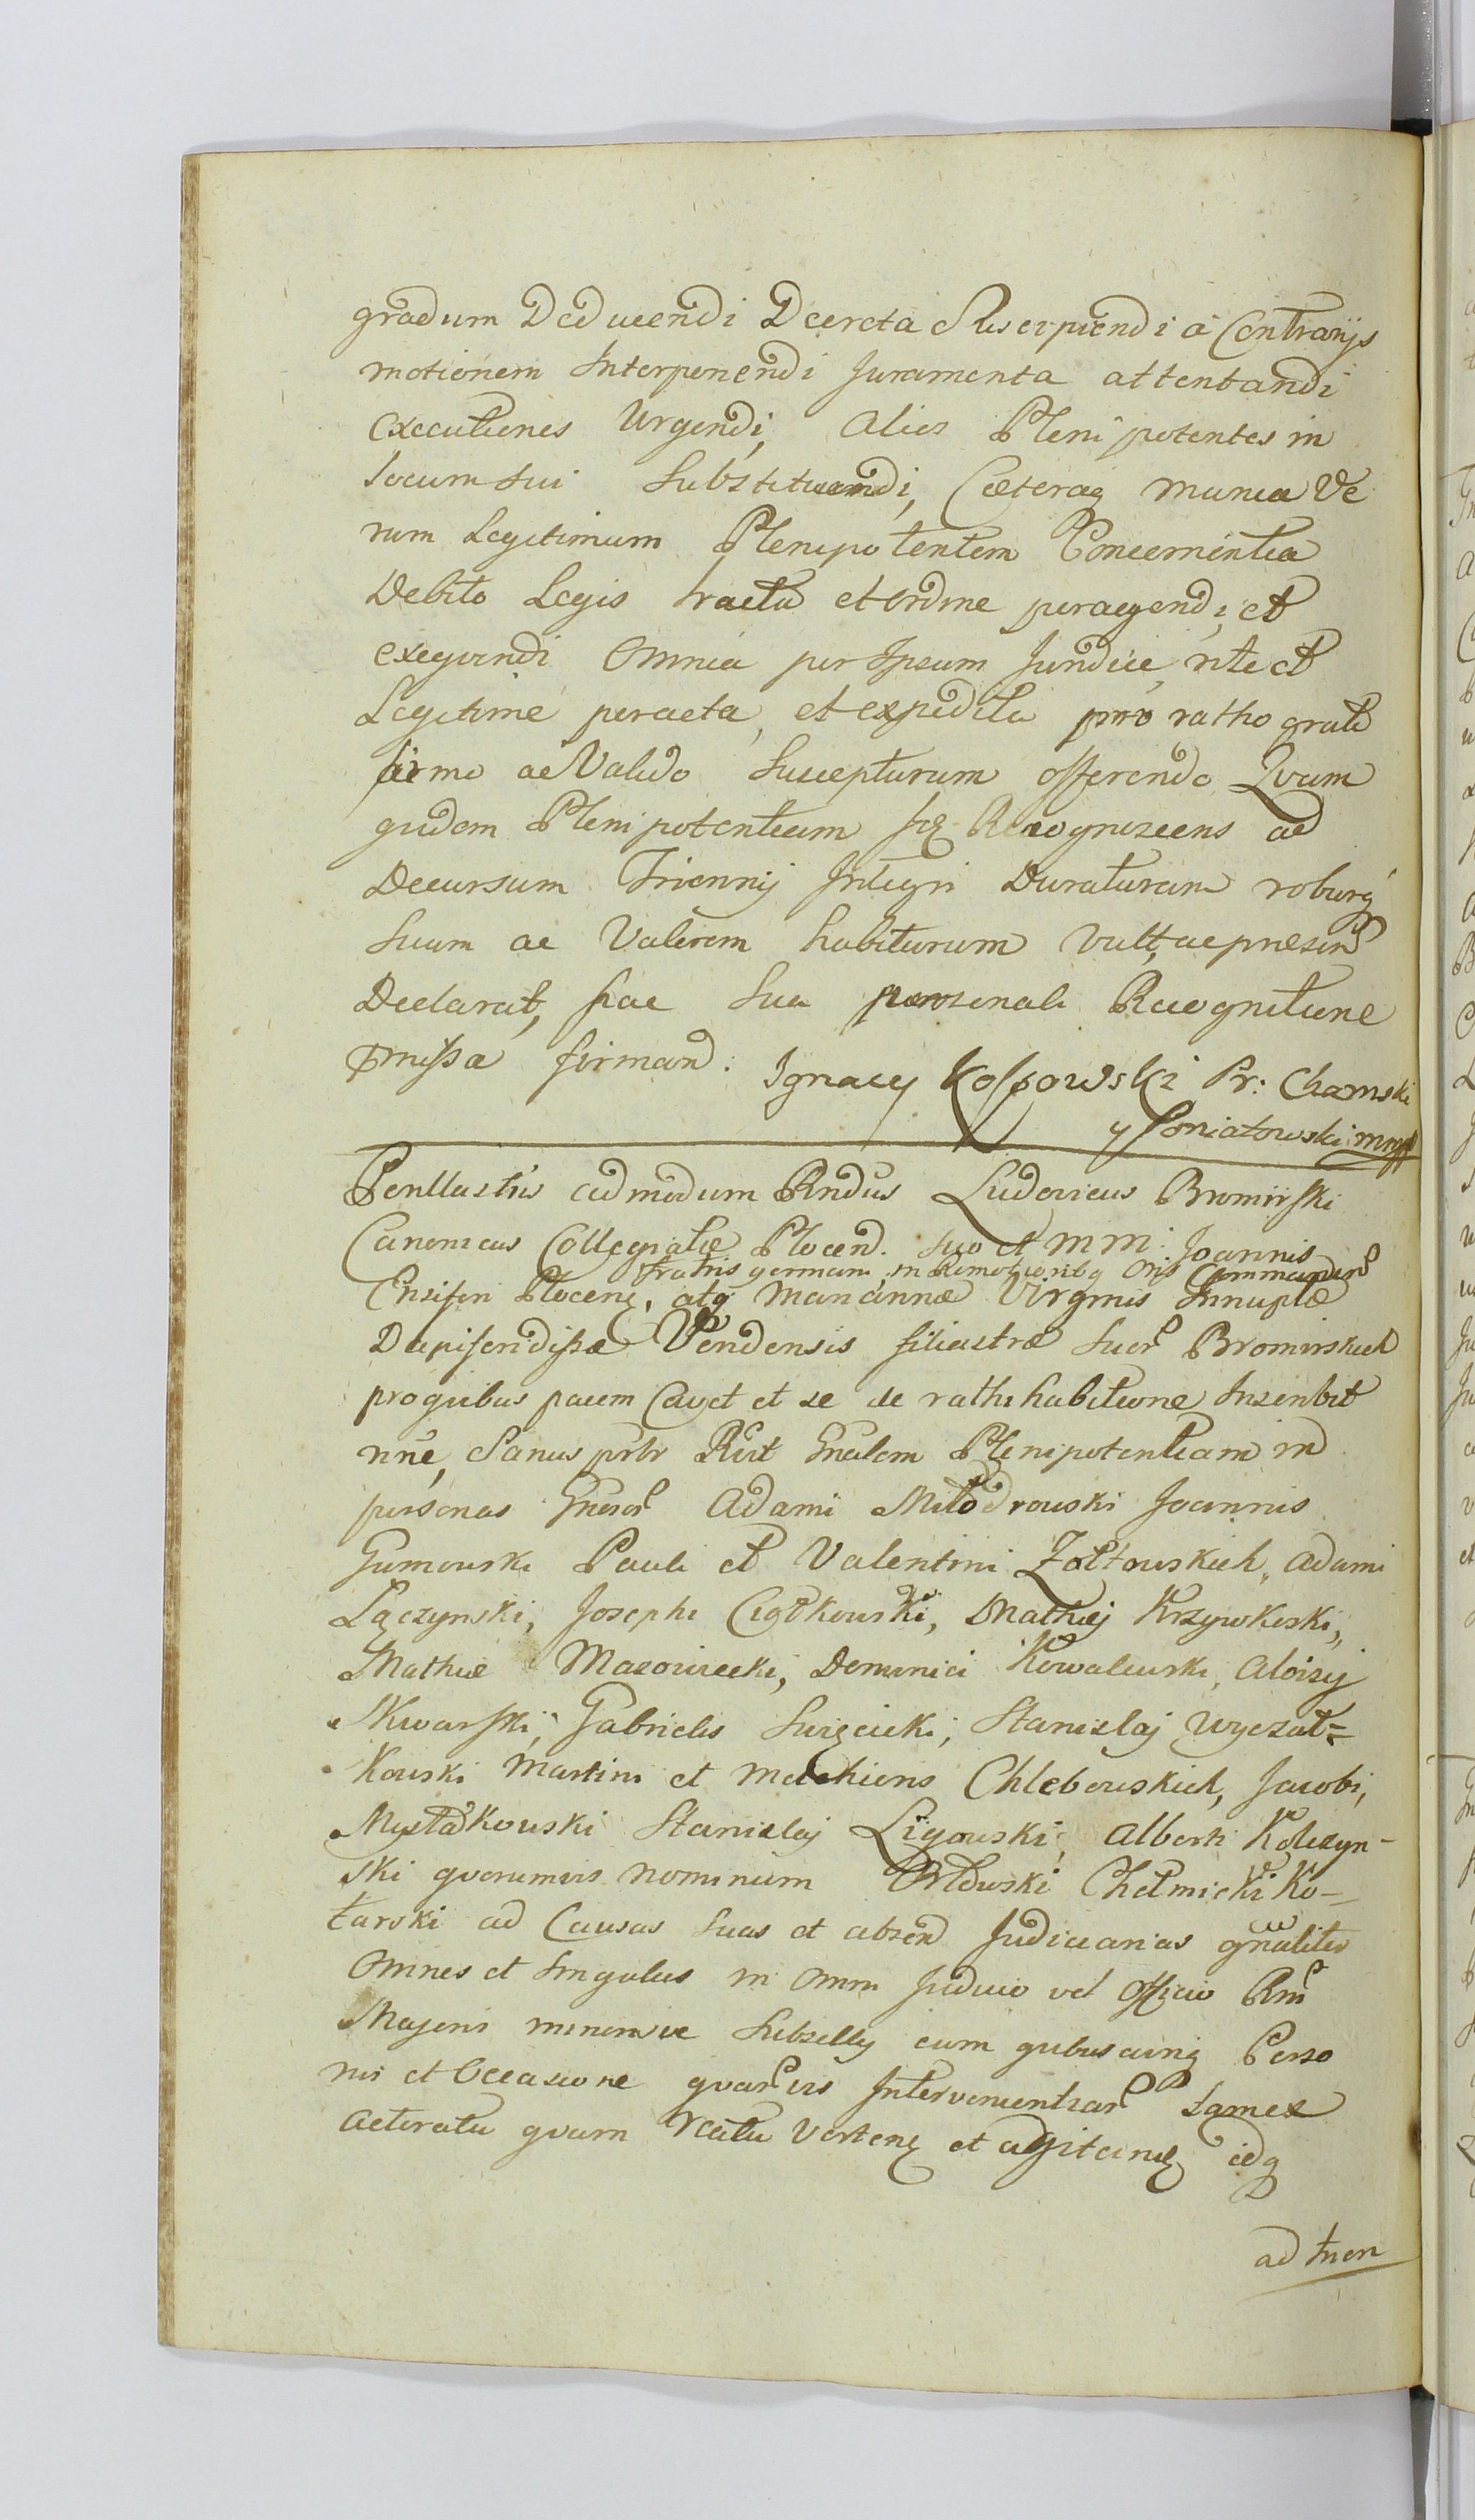 gradum Deducendi Decreta Suscipiendi a Contrarijs
motionem Interponendi Juramenta attentandi
executiones Urgendi, Alios Plenipotentes in
locum sui Substituendi, Cæteraq munia Ve
rum Legitimum Plenipotentem Concernentia
Debito Legis tractu et ordine peragendi, et
exequendi Omnia per Ipsum Juridice, rite et
Legitime peracta, et expedita pro ratho grato
firmo ac Valido Suscepturum offerendo Quam
quidem Plenipotentiam Recognoscens ad
Decursum Triennij Integri Duraturam roburq
Suum ac Valorem habiturum vult, ac præsen
Declarat, hac Sua personali Recognitione
pmissa firmand: Ignacy Kossowski Pr: Chamski
y Poniatowski mpp
Perillustris admodum Rndus Ludovicus Bromirski
Canonicus Collegiatæ Plocen. suo et M M: Joannis
fratris germani, in Remotioribq Oris Commoran
Ensiferi Plocen, atq Mariannæ Virginis Innuptæ
Dapiferidissæ Vendensis filiastræ Suor Bromirskich
pro quibus pacem Cavet et se de rathihabitione Inscribit
nne, Sanus Gnalem Plenipotentiam in
personas Gneror Adami Miłodrowski Joannis
Gumowski Pauli et Valentini Żółtowskich, Adami
Łączynski, Josephi Ciołkowski, Mathæj Krzywkoski,
Mathiæ Mazowiecki, Dominici Kowalewski, Aloisij
Skwarski, Gabrielis Swięcicki, Stanislaj Wyczał=
kowski Martini et Melchioris Chlebowskich, Jacobi,
Mystkowski Stanislaj Ligowski, Alberti Kolczyn-
ski quorumvis nominum Orłowski Chełmicki Ko-
tarski ad Causas Suas et absen Judiciarias gnaliter
Omnes et Singulas in Omni Judicio vel Officio Rni
Majoris minorisve Subsellij cum quibuscunq Perso
nis et Occasione quarvis Intervenientiar tam ex
actoratu quam reatu Verten et agitan idq
ad tnen